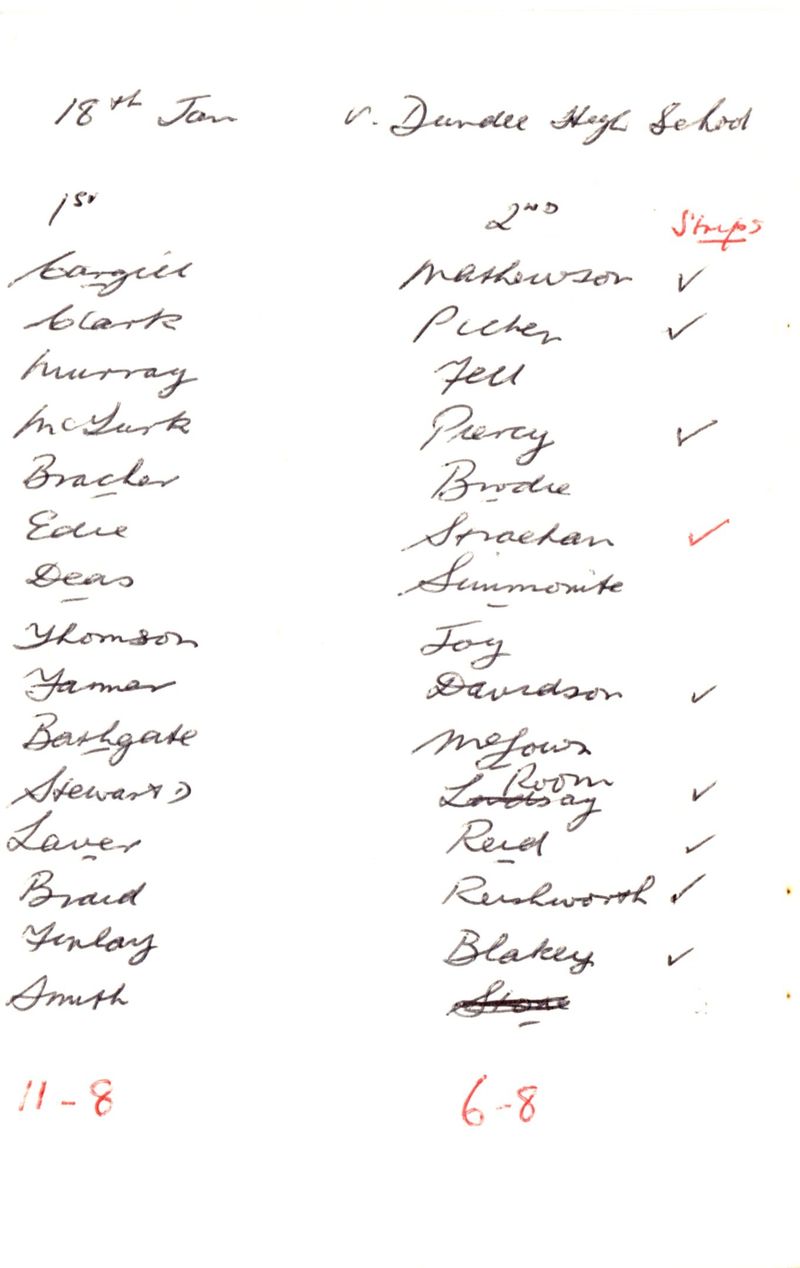 18th Jan v. Dundee High School
1st 2ND Strips
Cargill Mathewson ✓
Clark Pilcher ✓
Murray Fell
McGurk Piercy ✓
Bracher Brodie
Edie Strachan ✓
Deas Simmonite
Thomson Joy
Farmer Davidson ✓
Bathgate McGown
Stewart D Room
Lindsay ✓
Laver Reid ✓
Braid Rushworth ✓
Finlay Blakey ✓
Smith Stone
11-8 6-8